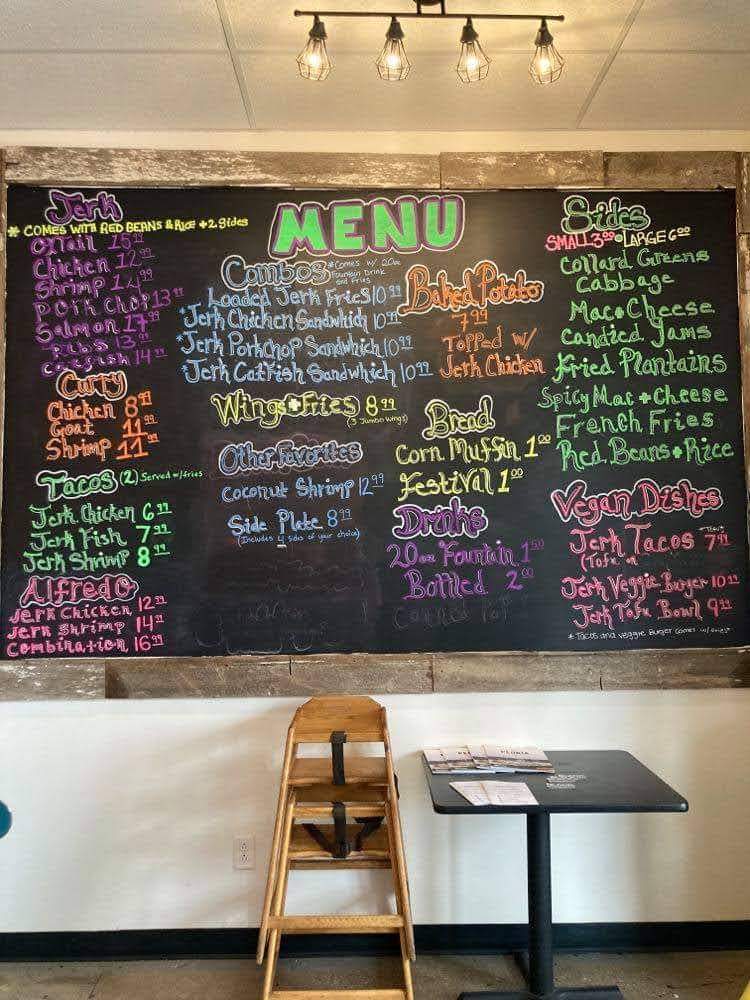 MENU
Jerk
* COMES WITH RED BEANS & RICE + 2 Sides
OXTail 15.99
Chicken 12.99
Shrimp 14.99
PORK Chop 13.99
Salmon 17.99
Ribs 13.99
Catfish 14.99
Curry
Chicken 8.99
Goat 11.99
Shrimp 11.99
Tacos (2) Served w/fries
Jerk Chicken 6.99
Jerk Fish 7.99
Jerk Shrimp 8.99
Alfredo
Jerk Chicken 12.99
Jerk Shrimp 14.99
Combination 16.99
Combos *Comes w/ 20oz
Fountain Drink
and Fries
Loaded Jerk Fries 10.99
*Jerk Chicken Sandwhich 10.99
*Jerk PorkChop Sandwhich 10.99
*Jerk Catfish Sandwhich 10.99
Wings + Fries 8.99
(3 Jumbo Wings)
Other Favorites
Coconut Shrimp 12.99
Side Plate 8.99
(Includes 4 sides of your choice)
Baked Potato
7.99
Topped w/
Jerk Chicken
Bread
Corn Muffin 1.00
Festival 1.00
Drinks
20oz Fountain 1.50
Bottled 2.00
Canned Pop
Sides
SMALL 3.00 LARGE 6.00
Collard Greens
Cabbage
Mac + Cheese
Candied Yams
Fried Plantains
Spicy Mac + Cheese
French Fries
Red Beans + Rice
Vegan Dishes
Jerk Tacos 7.99
(Tofu or
Jerk Veggie Burger 10.99
Jerk Tofu Bowl 9.99
* Tacos and veggie Burger comes w/ fries*
PEORIA